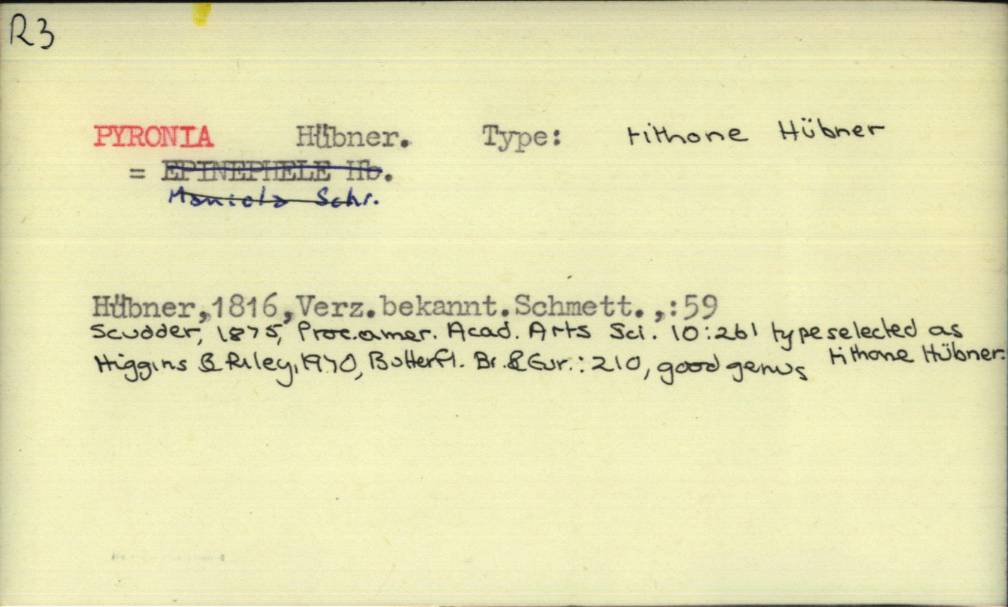 R3
PYRONIA Hübner. Type: tithone Hübner
= EPINEPHELE Hb.
Maniola Schr.
Hübner,1816,Verz.bekannt.Schmett.,:59
Scudder, 1875, Proc.amer. Acad. Arts Sci. 10:261 type selected as
tithone Hübner.
Higgins & Riley, 1970, Butterfl. Br. & Eur.: 210, good genus